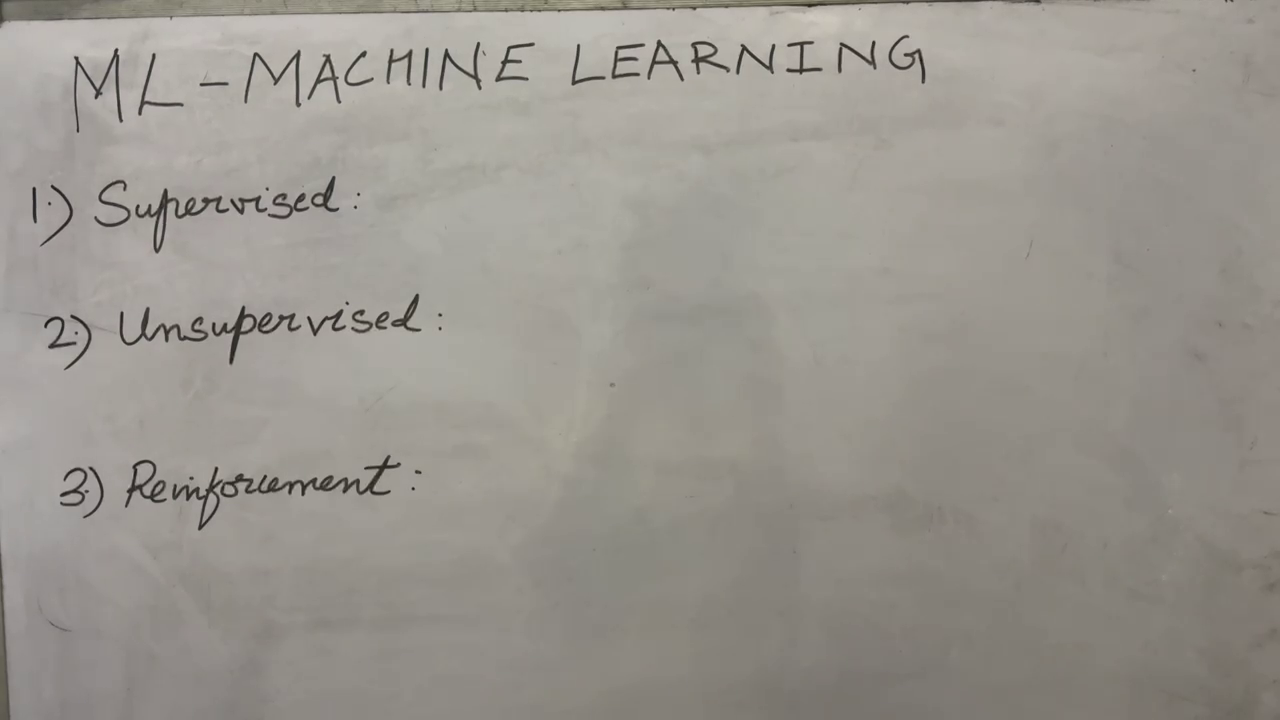 ML - MACHINE LEARNING
1.) Supervised :
2.) Unsupervised :
3.) Reinforcement :